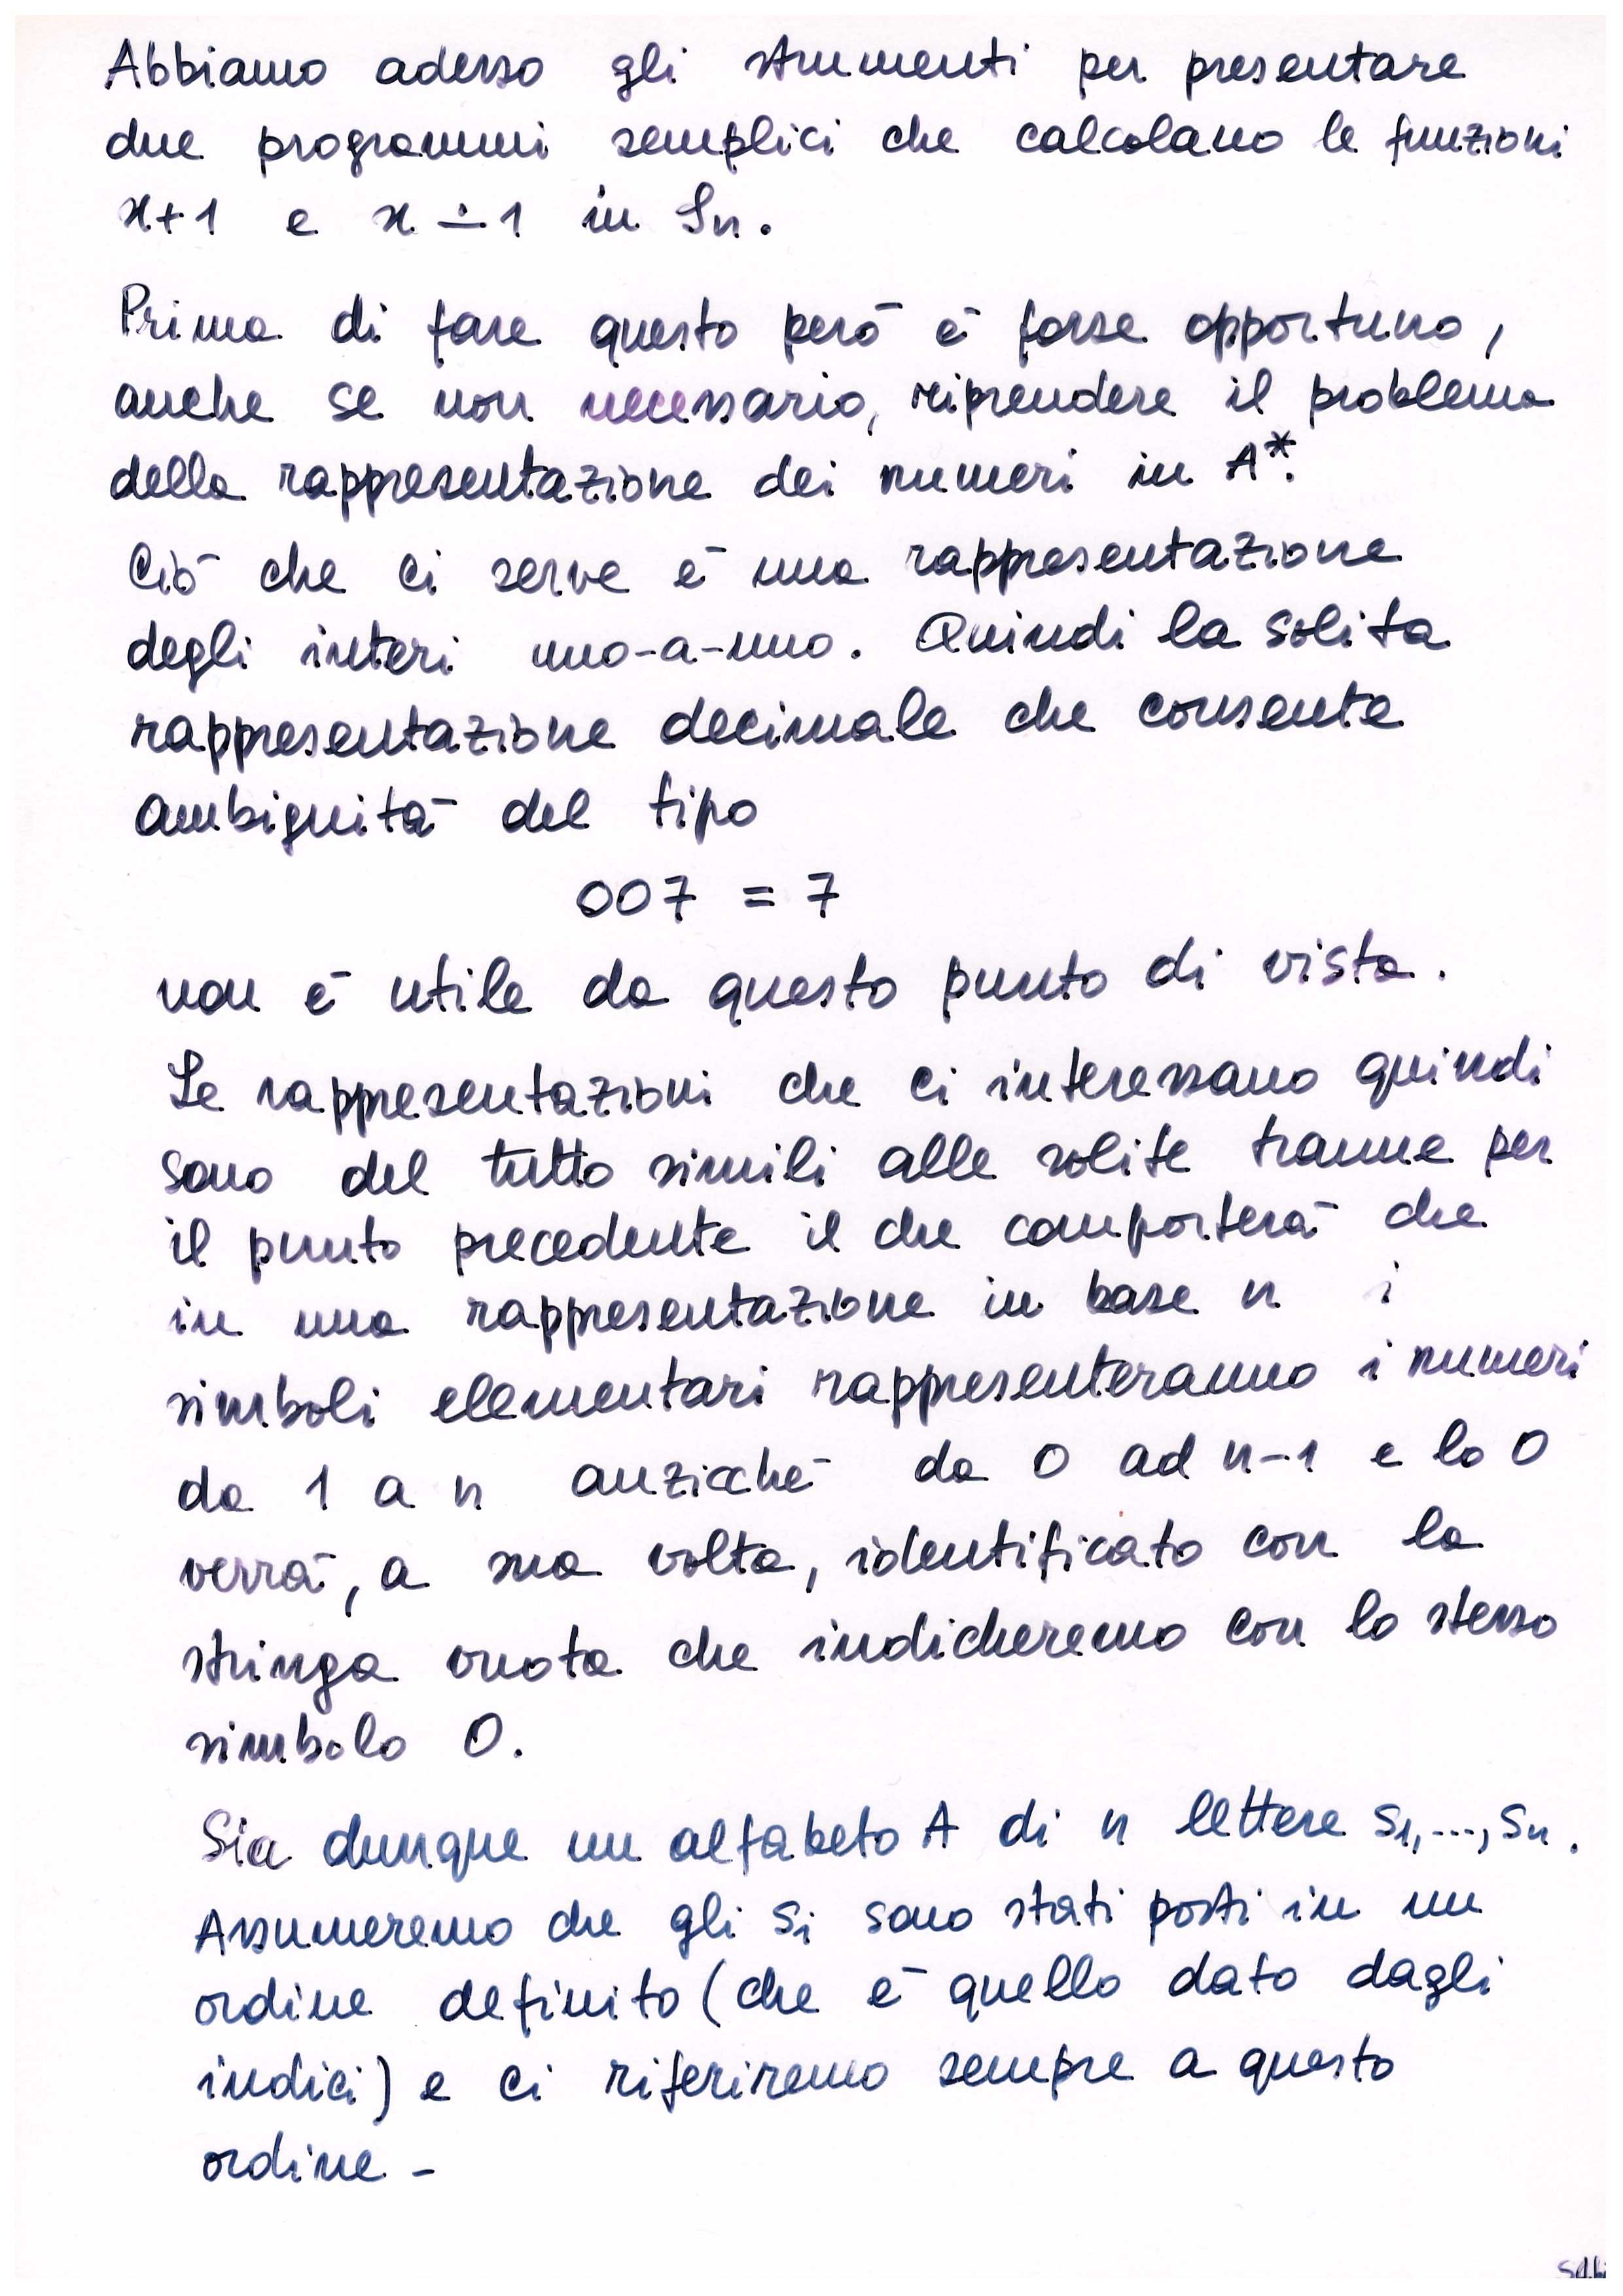 Abbiamo adesso gli strumenti per presentare
due programmi semplici che calcolano le funzioni
x+1 e x∸1 in Sn.
Prima di fare questo però è forse opportuno,
anche se non necessario, riprendere il problema
della rappresentazione dei numeri in A*.
Ciò che ci serve è una rappresentazione
degli interi uno-a-uno. Quindi la solita
rappresentazione decimale che consente
ambiguità del tipo
007 = 7
non è utile da questo punto di vista.
Le rappresentazioni che ci interessano quindi
sono del tutto simili alle solite tranne per
il punto precedente il che comporterà che
in una rappresentazione in base n i
simboli elementari rappresenteranno i numeri
da 1 a n anzicché da 0 ad n-1 e lo 0
verrà, a sua volta, identificato con la
stringa vuota che indicheremo con lo stesso
simbolo 0.
Sia dunque un alfabeto A di n lettere s1,...,sn.
Assumeremo che gli si sono stati posti in un
ordine definito (che è quello dato dagli
indici) e ci riferiremo sempre a questo
ordine -